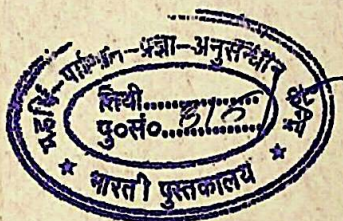 पाणिनि-प्रज्ञा-अनुसन्धान
तिथी..................
पु०सं०..................
★ भारती पुस्तकालय ★